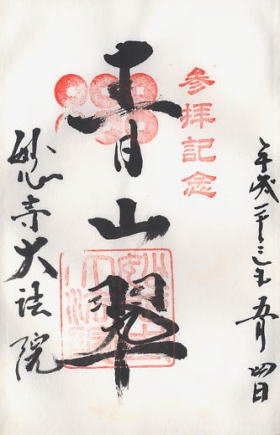 参拝記念
平成二十三年五月四日
青山翠
妙心寺大法院